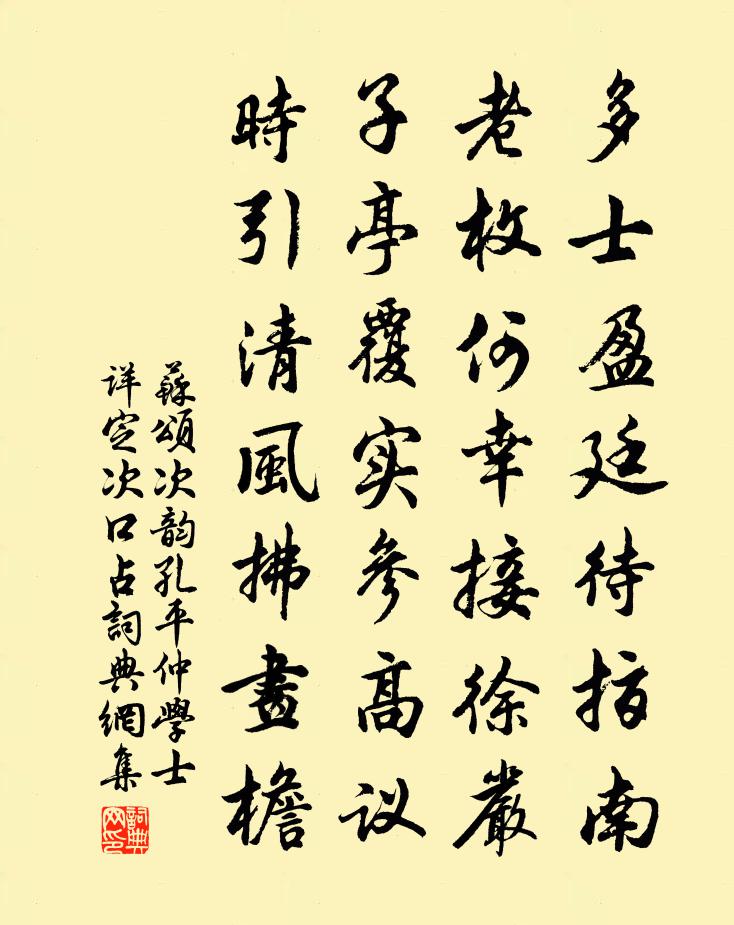 多士盈廷待指南
老枚何幸接徐嚴
子亭覆实參高议
時引清風拂畫檐
蘇頌次韵孔平仲學士
详定次口占詞典網集
詞典网印